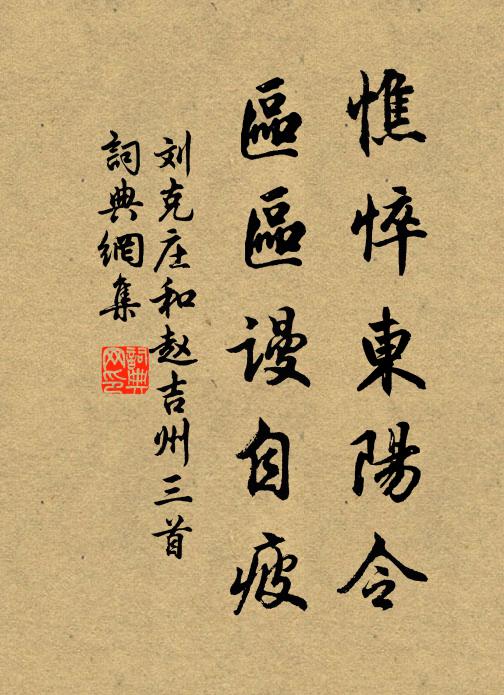 憔悴東陽令
區區謾自疲
刘克庄和赵吉州三首
詞典網集
詞典
网印